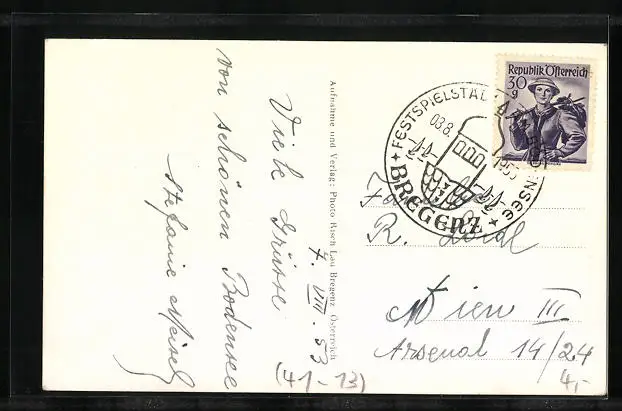 7. VIII. 53
Viele Grüsse
vom schönen Bodensee
Stefanie Meisel
(41-13)
Aufnahme und Verlag: Photo Risch Lau Bregenz, Österreich
Republik Österreich
30 g
FESTSPIELSTADT AM BODENSEE
03.8.1953
BREGENZ
R.
Wien III
Arsenal 14/24
4,-